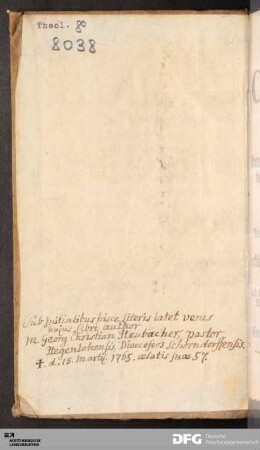 Theol. 8o
8038
Sub Initialibus hisce literis latet verus
hujus libri author
M. Georg Christian Neubacher, pastor
Hegenlohensis, Dioeceseos Schorndorffensis.
†. d. 15. Martij. 1765. ætatis suæ 57.
DFG Deutsche
Forschungsgemeinschaft